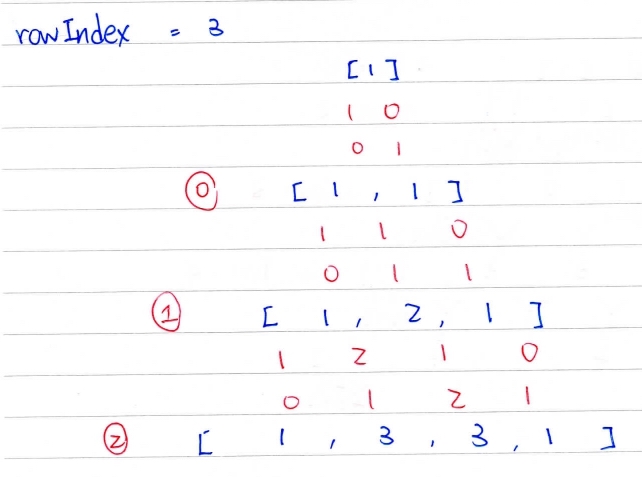 rowIndex = 3
[1]
1 0
0 1
0 [ 1 , 1 ]
1 1 0
0 1 1
1 [ 1 , 2 , 1 ]
1 2 1 0
0 1 2 1
2 [ 1 , 3 , 3 , 1 ]